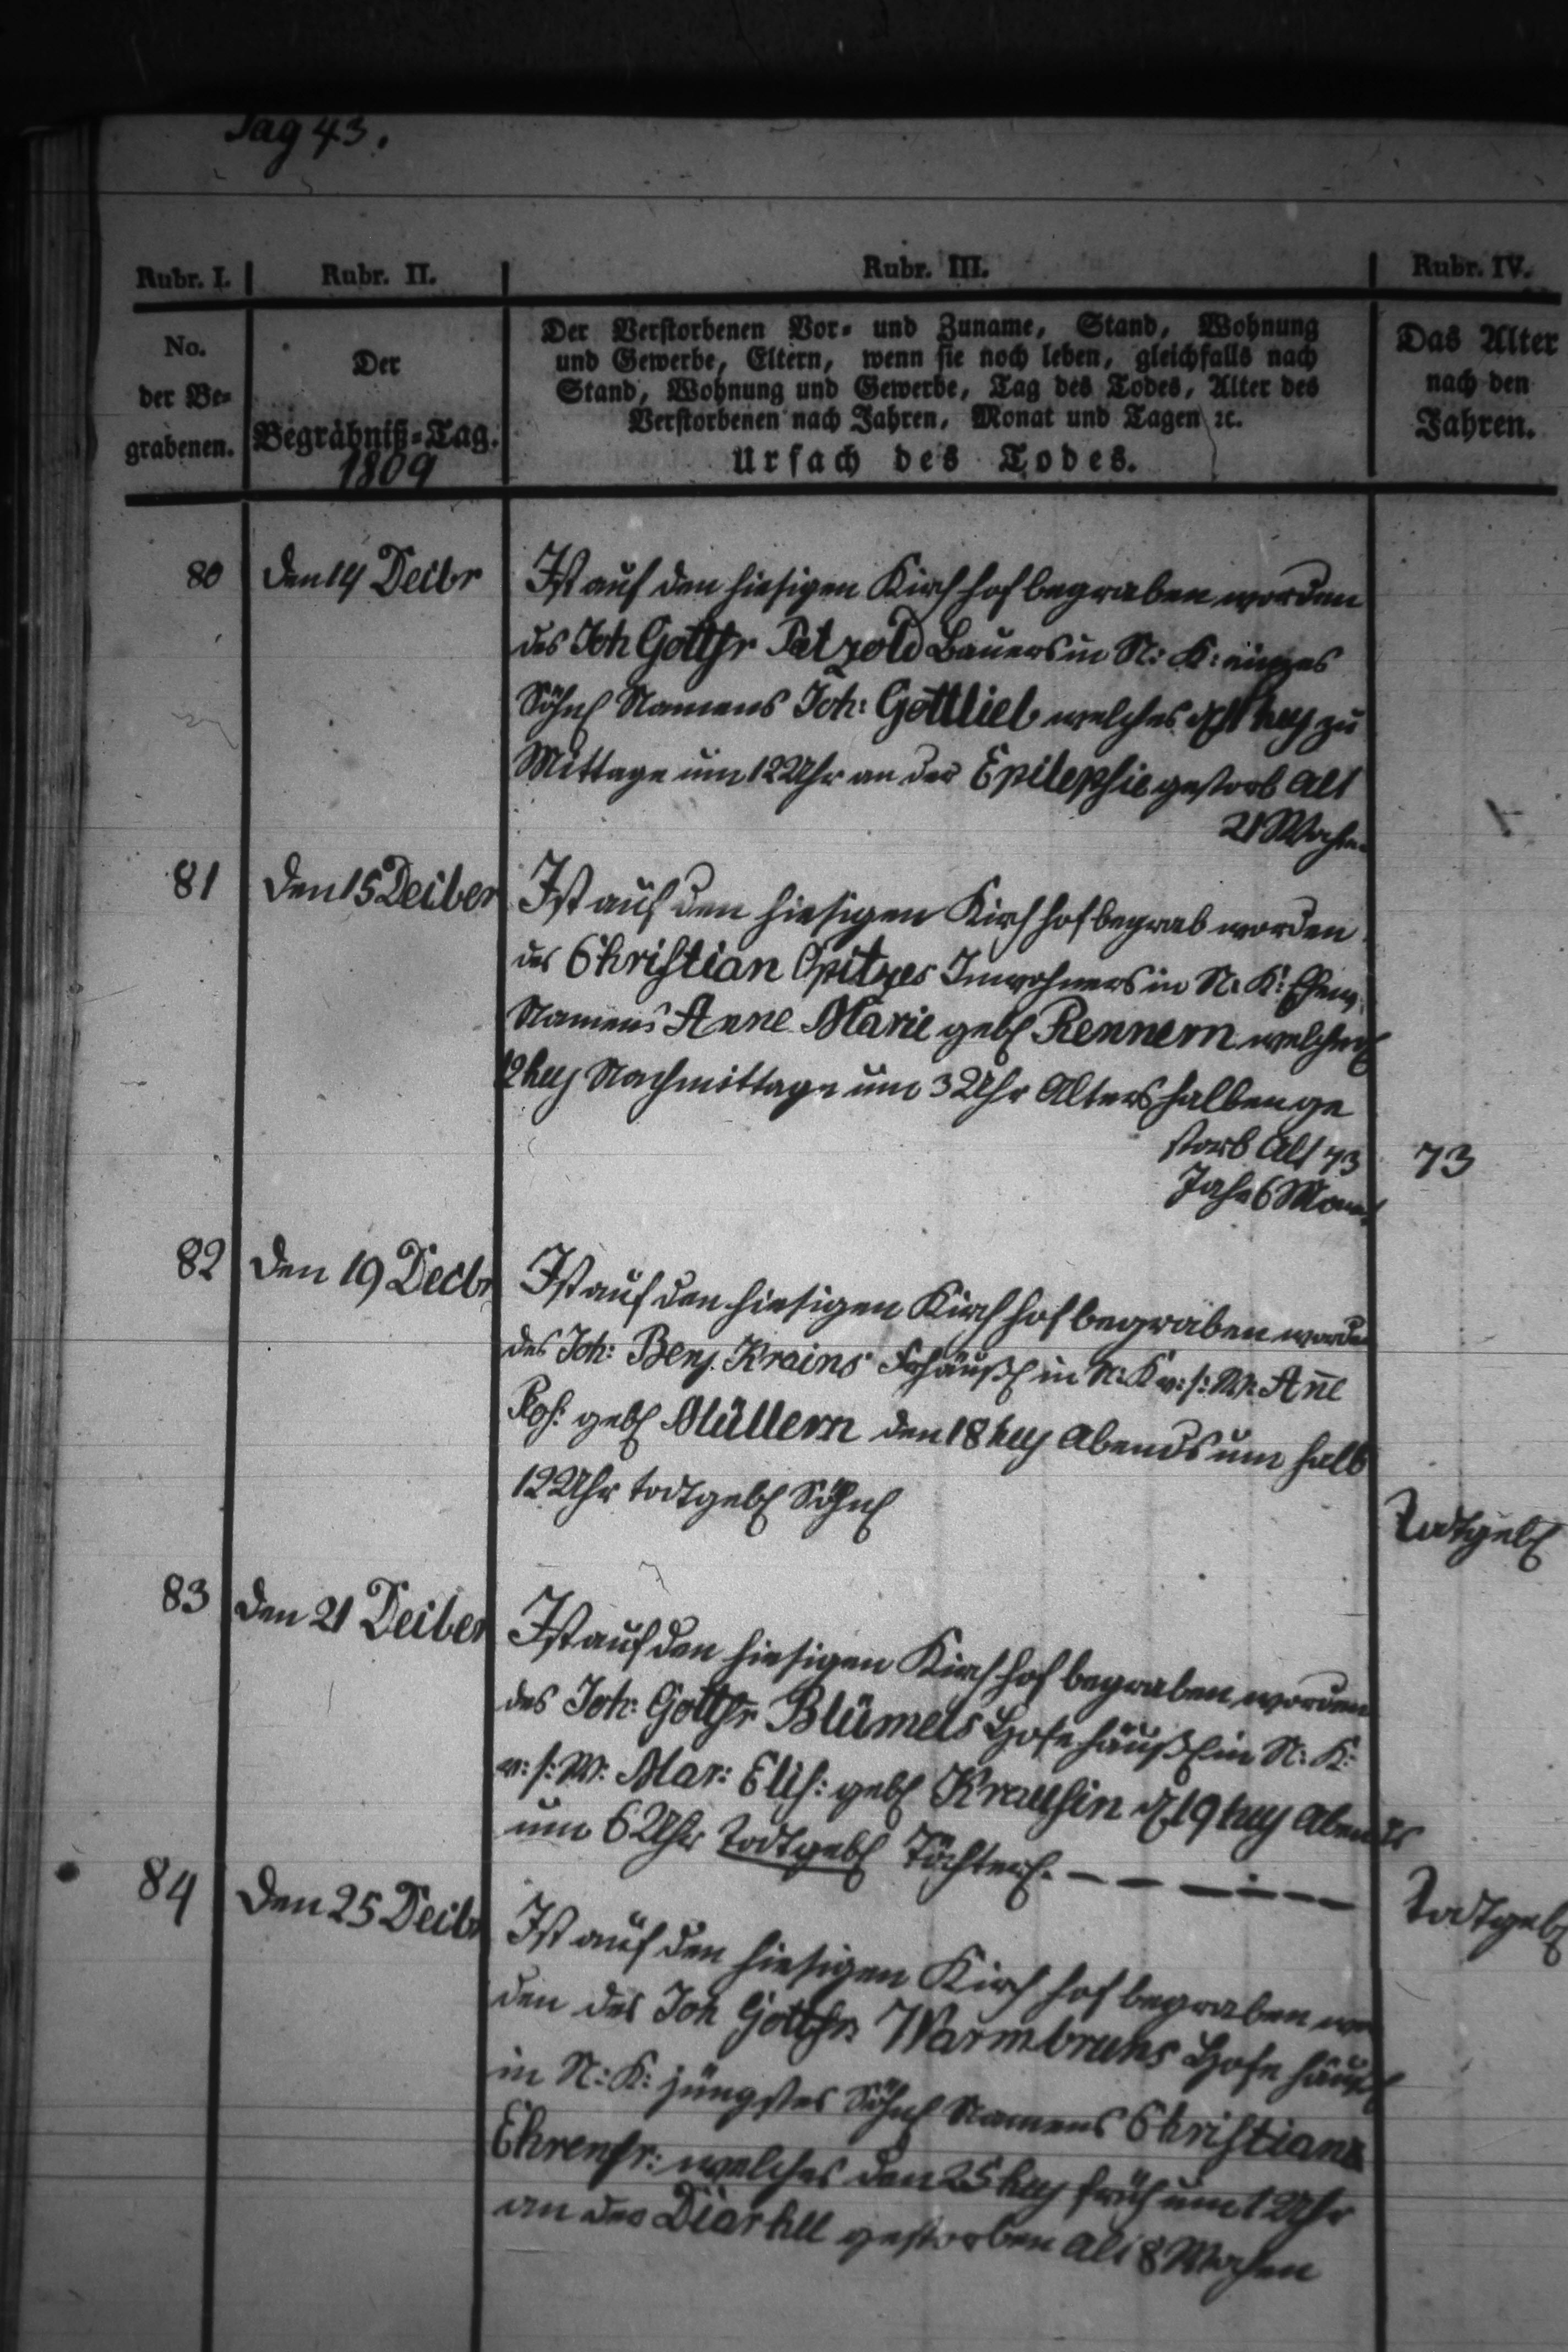 Pag 43.
Rubr. I. Rubr. II. Rubr. III. Rubr. IV.
No. der Be- grabenen.
Der Begräbniß-Tag.
1809
Der Verstorbenen Vor- und Zuname, Stand, Wohnung
und Gewerbe, Eltern, wenn sie noch leben, gleichfalls nach
Stand, Wohnung und Gewerbe, Tag des Todes, Alter des
Verstorbenen nach Jahren, Monat und Tagen ꝛc.
Ursach des Todes.
Das Alter
nach den
Jahren.
80 den 14 Decbr Ist auf den hiesigen Kirchhof begraben worden
des Joh Gottfr Patzold Bauers in N: K: einzges
Söhnl Namens Joh: Gottlieb welches huj zu
Mittage um 12 Uhr an der Epilepsie gestorb Alt
21 Wochen
81 den 15 Decber Ist auf den hiesigen Kirchhof begrab worden
des Christian Opitzes Inwohners in N: K: Ehew:
Namens Anne Marie gebl Rennern welche
12 huj Nachmittage um 3 Uhr Alters halben ge
storb Alt 73 73
Jahr 6 Monat
82 den 19 Decbr Ist auf den hiesigen Kirchhof begraben worden
des Joh: Benj. Krains Frhäußl in N: K v: s: W: Anne
Ros: gebl Müllern den 18 huj Abends um halb
12 Uhr todtgebl Söhnl
Todtgebl
83 den 21 Decber Ist auf den hiesigen Kirchhof begraben worden
des Joh: Gottfr Blümels Hofehäußl in N: K:
v: s: W: Mar: Elis: gebl Krausin d 19 huj Abends
um 6 Uhr todtgebl Töchterl.
Todtgebl
84 den 25 Decbr Ist auf den hiesigen Kirchhof begraben wor
den des Joh Gottfr: Warmbruns Hofehäußl
in N: K: jüngstes Söhnl Namens Christian
Ehrenfr: welches den 25 huj früh um 1 Uhr
an der Diarhee gestorben alt 8 Wochen